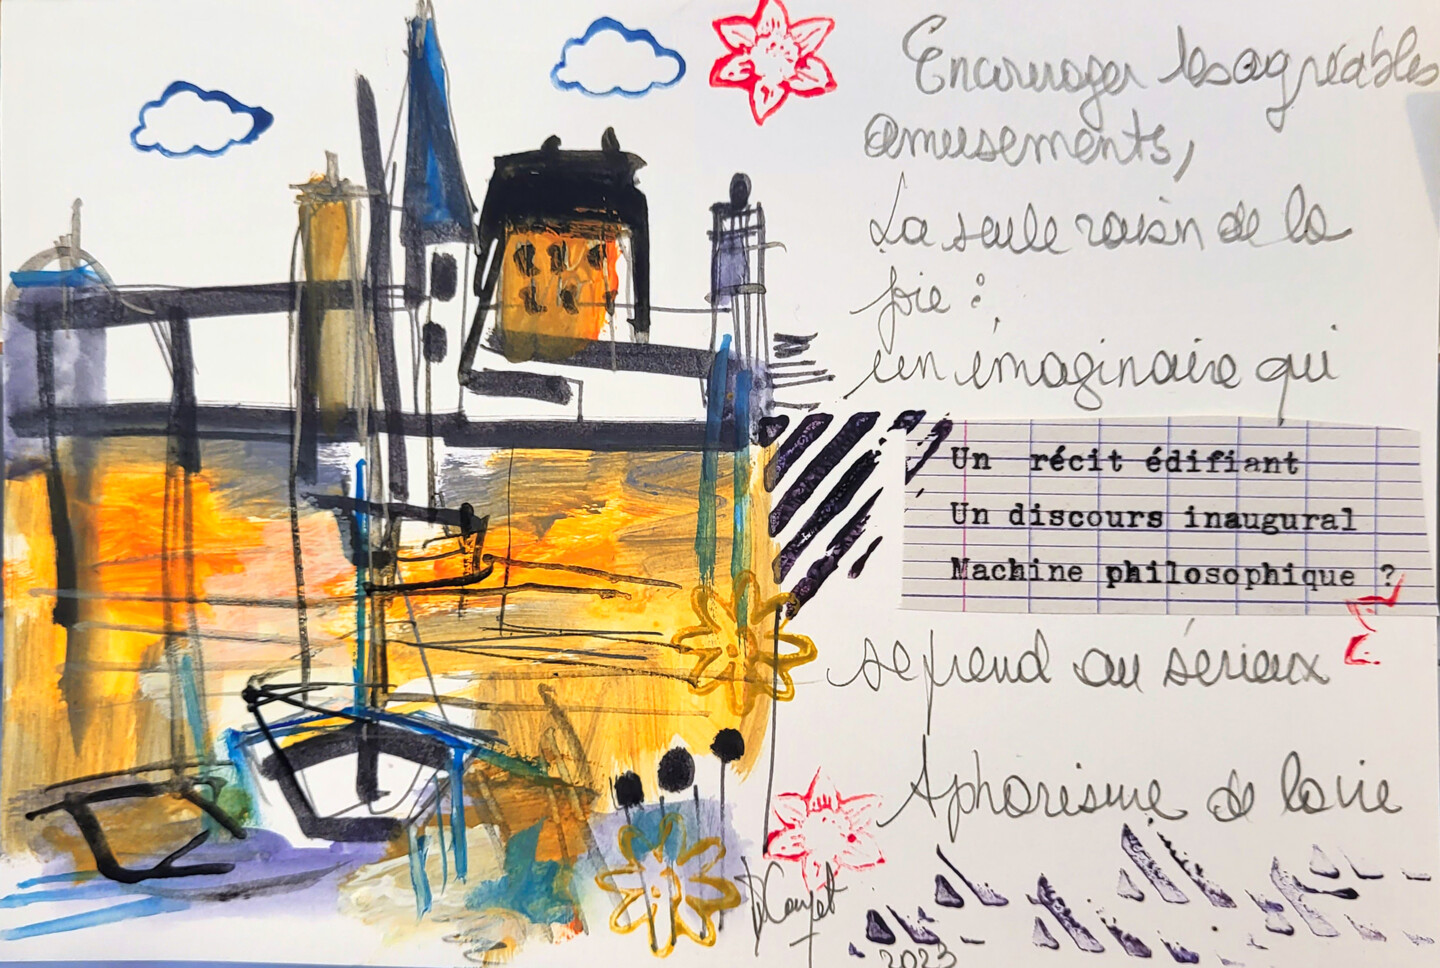 Encourager les agréables
amusements,
La seule raison de la
joie :
un imaginaire qui
Un récit édifiant
Un discours inaugural
Machine philosophique ?
se prend au sérieux
Aphorisme de la vie
2023